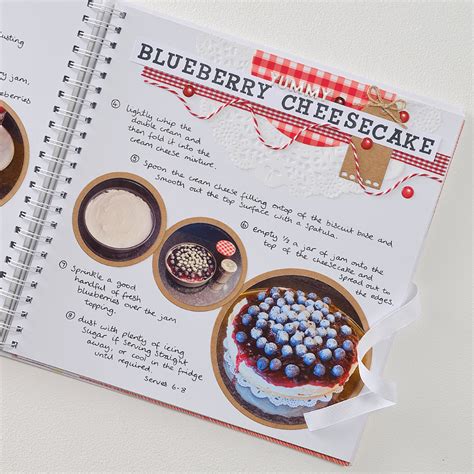 custing
jam,
eberries
YUMMY
BLUEBERRY CHEESECAKE
④ lightly whip the
double cream and
then fold it into the
cream cheese mixture.
⑤ Spoon the cream cheese filling ontop of the biscuit base and
smooth out the top surface with a spatula.
⑥ empty ⅓ a jar of jam onto the
top of the cheesecake and
spread out to
the edges
⑦ sprinkle a good
handful of fresh
blueberries over the jam
topping.
⑧ dust with plenty of icing
Sugar if serving straight
away, or cool in the fridge
until required.
Serves 6-8